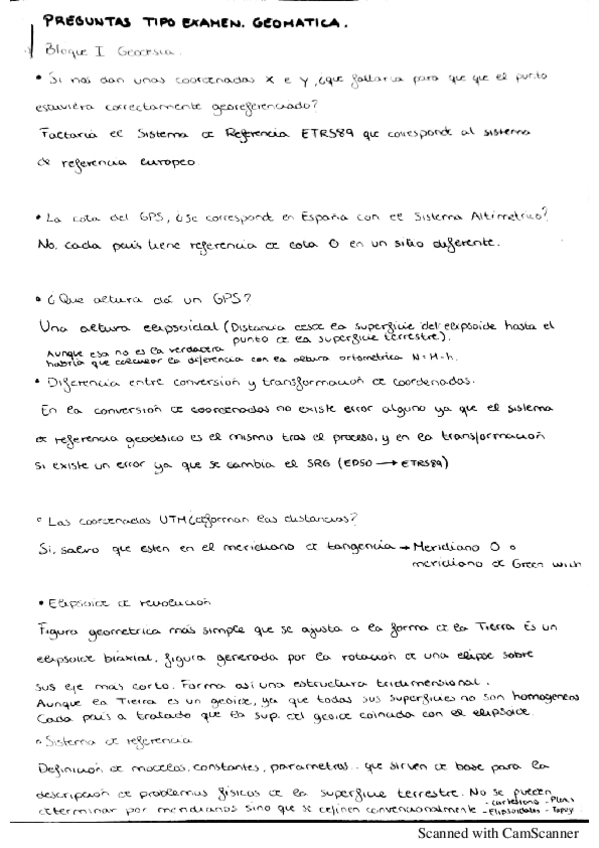 PREGUNTAS TIPO EXAMEN. GEOMATICA.
Bloque I Geodesia.
• Si nos dan unas coordenadas X e Y, ¿que faltaria para que que el punto
estuviera correctamente georeferenciado?
Faltaria el Sistema de Referencia ETRS89 que corresponde al sistema
de referencia europeo.
• La cota del GPS, ¿Se corresponde en España con el Sistema Altimetrico?
No, cada pais tiene referencia de cota 0 en un sitio diferente.
• ¿Que altura dá un GPS?
Una altura elipsoidal (Distancia desde la superficie del elipsoide hasta el
punto de la superficie terrestre).
Aunque esa no es la verdadera
habria que calcular la diferencia con la altura ortometrica N=H-h.
• Diferencia entre conversion y transformacion de coordenadas.
En la conversion de coordenadas no existe error alguno ya que el sistema
de referencia geodesico es el mismo tras el proceso, y en la transformación
Si existe un error ya que se cambia el SRG (ED50 → ETRS89)
• Las coordenadas UTM ¿deforman las distancias?
Si, salvo que esten en el meridiano de tangencia → Meridiano 0 o
meridiano de Greenwich
• Elipsoide de revolución
Figura geometrica más simple que se ajusta a la forma de la Tierra Es un
elipsoide biaxial, figura generada por la rotacion de una elipse sobre
sus eje mas corto. Forma asi una estructura tridimensional.
Aunque la Tierra es un geoide, ya que todas sus superficies no son homogeneas
Cada pais a tratado que la sup. del geoide coincida con el elipsoide.
• Sistema de referencia
Definición de modelos, constantes, parametros... que sirven de base para la
descripcion de problemas físicos de la superficie terrestre. No se pueden
determinar por meridianos sino que se definen convencionalmente
- cartesiano - Planas
- Elipsoidales
Scanned with CamScanner